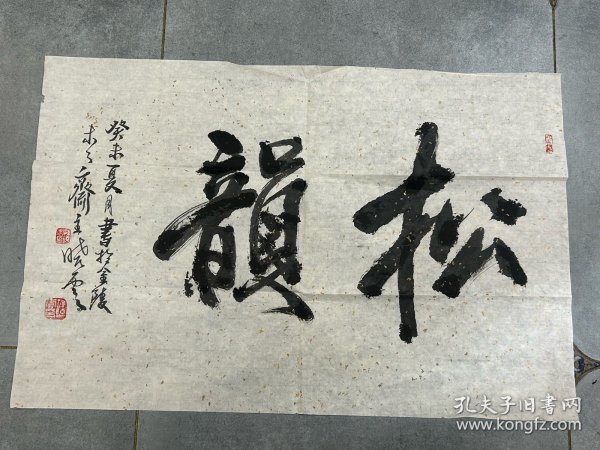 松韻
癸未夏月書於金陵
未了齋主曉雲
孔夫子旧書网
www.kongfz.com